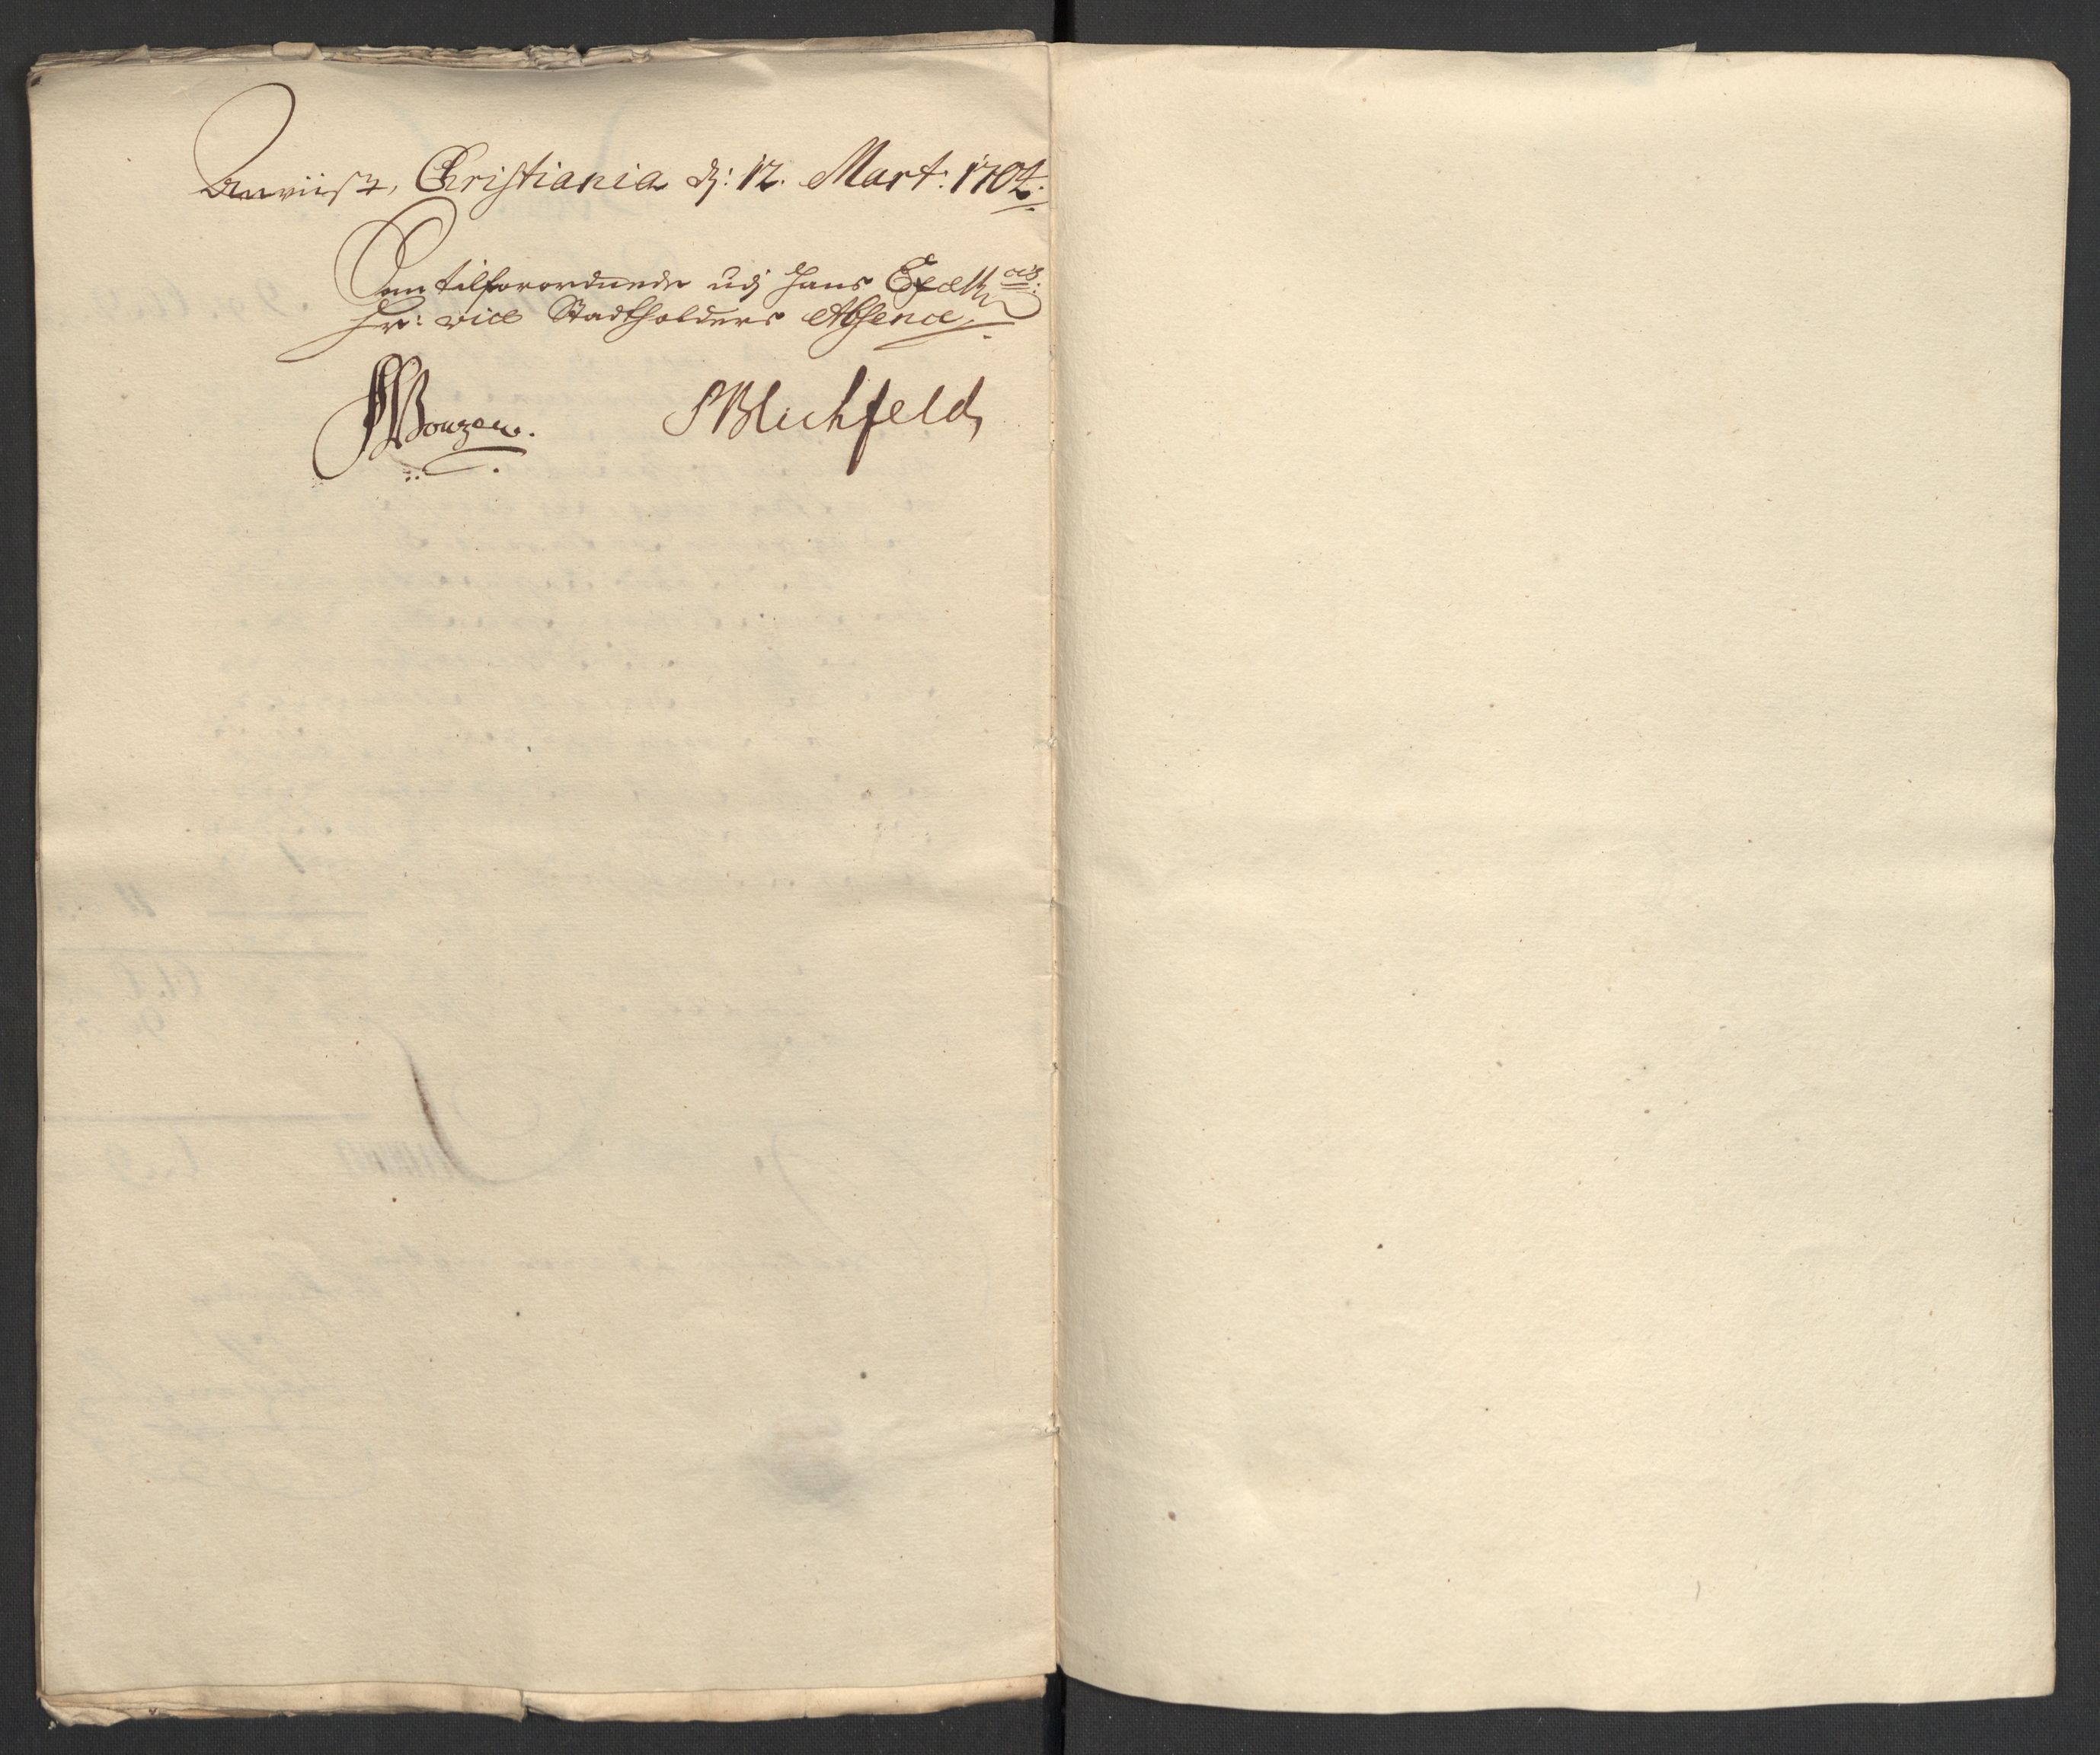 Anviist, Christiania d: 12. Mart: 1702.
Som tilforordnede udj Hans Excell: cis:
Hr: vice Stadtholders Absence,
Bonzen.
SBlichfeld